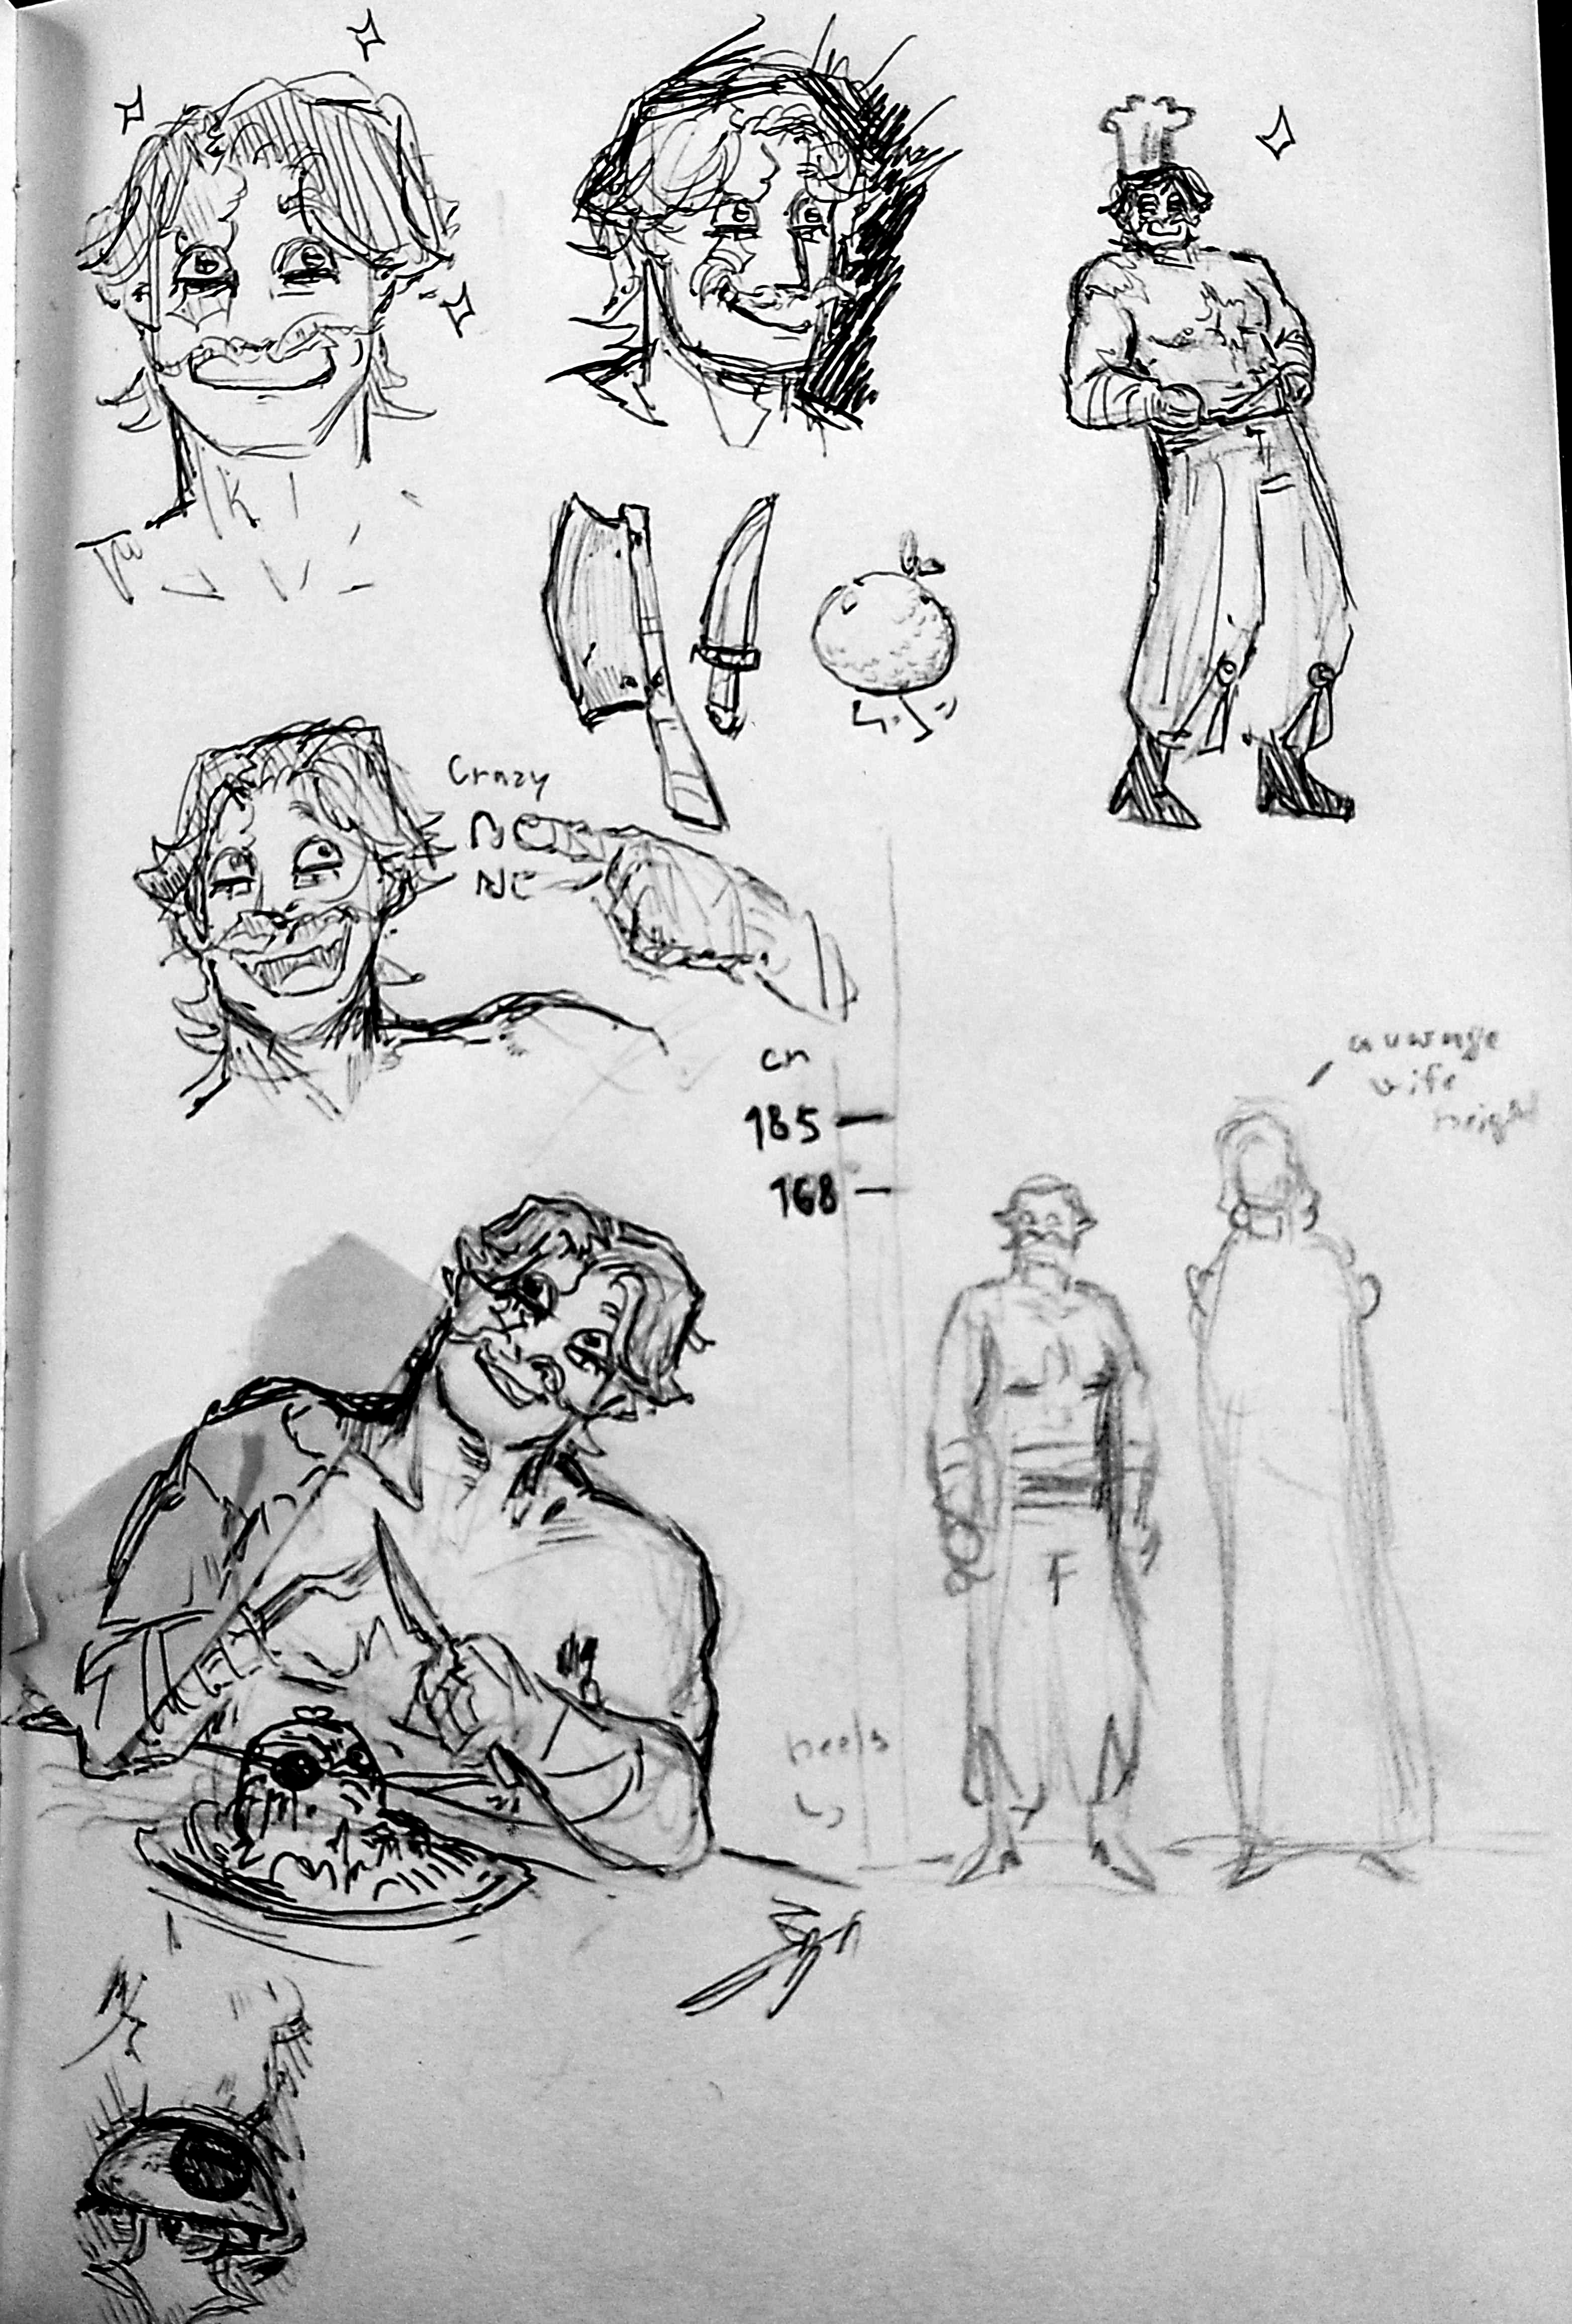 Crazy
NC
NC
cm
185
168
avurage
wife
height
heels